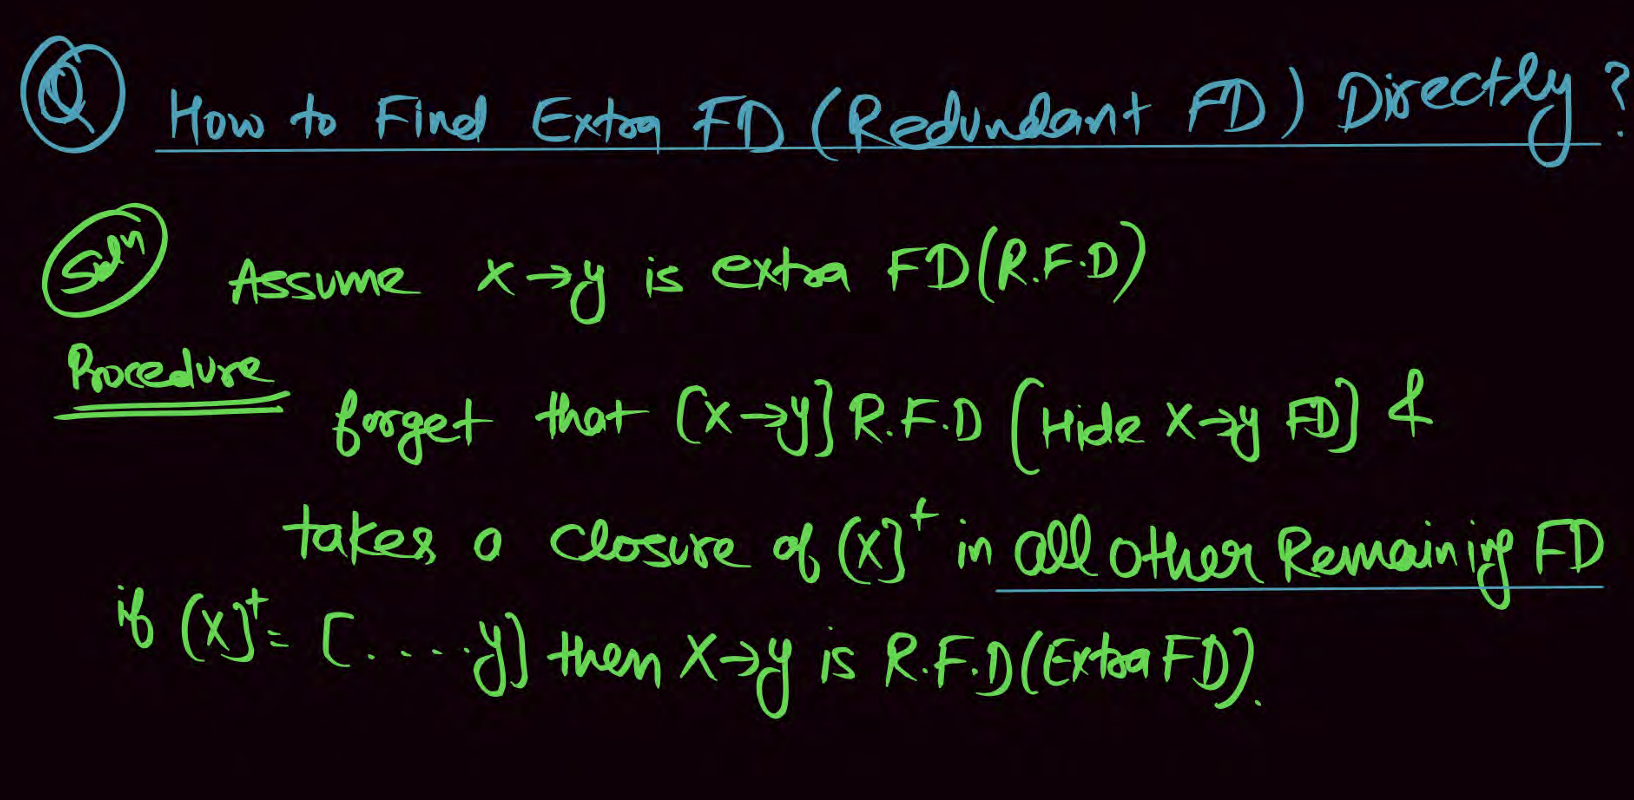 Q How to Find Extra FD (Redundant FD) Directly?
Soln Assume X→y is extra FD(R.F.D)
Procedure
forget that [X→y] R.F.D [Hide X→y FD] &
takes a closure of [X]⁺ in all other Remaining FD
if [X]⁺= [.....y] then X→y is R.F.D(Extra FD).